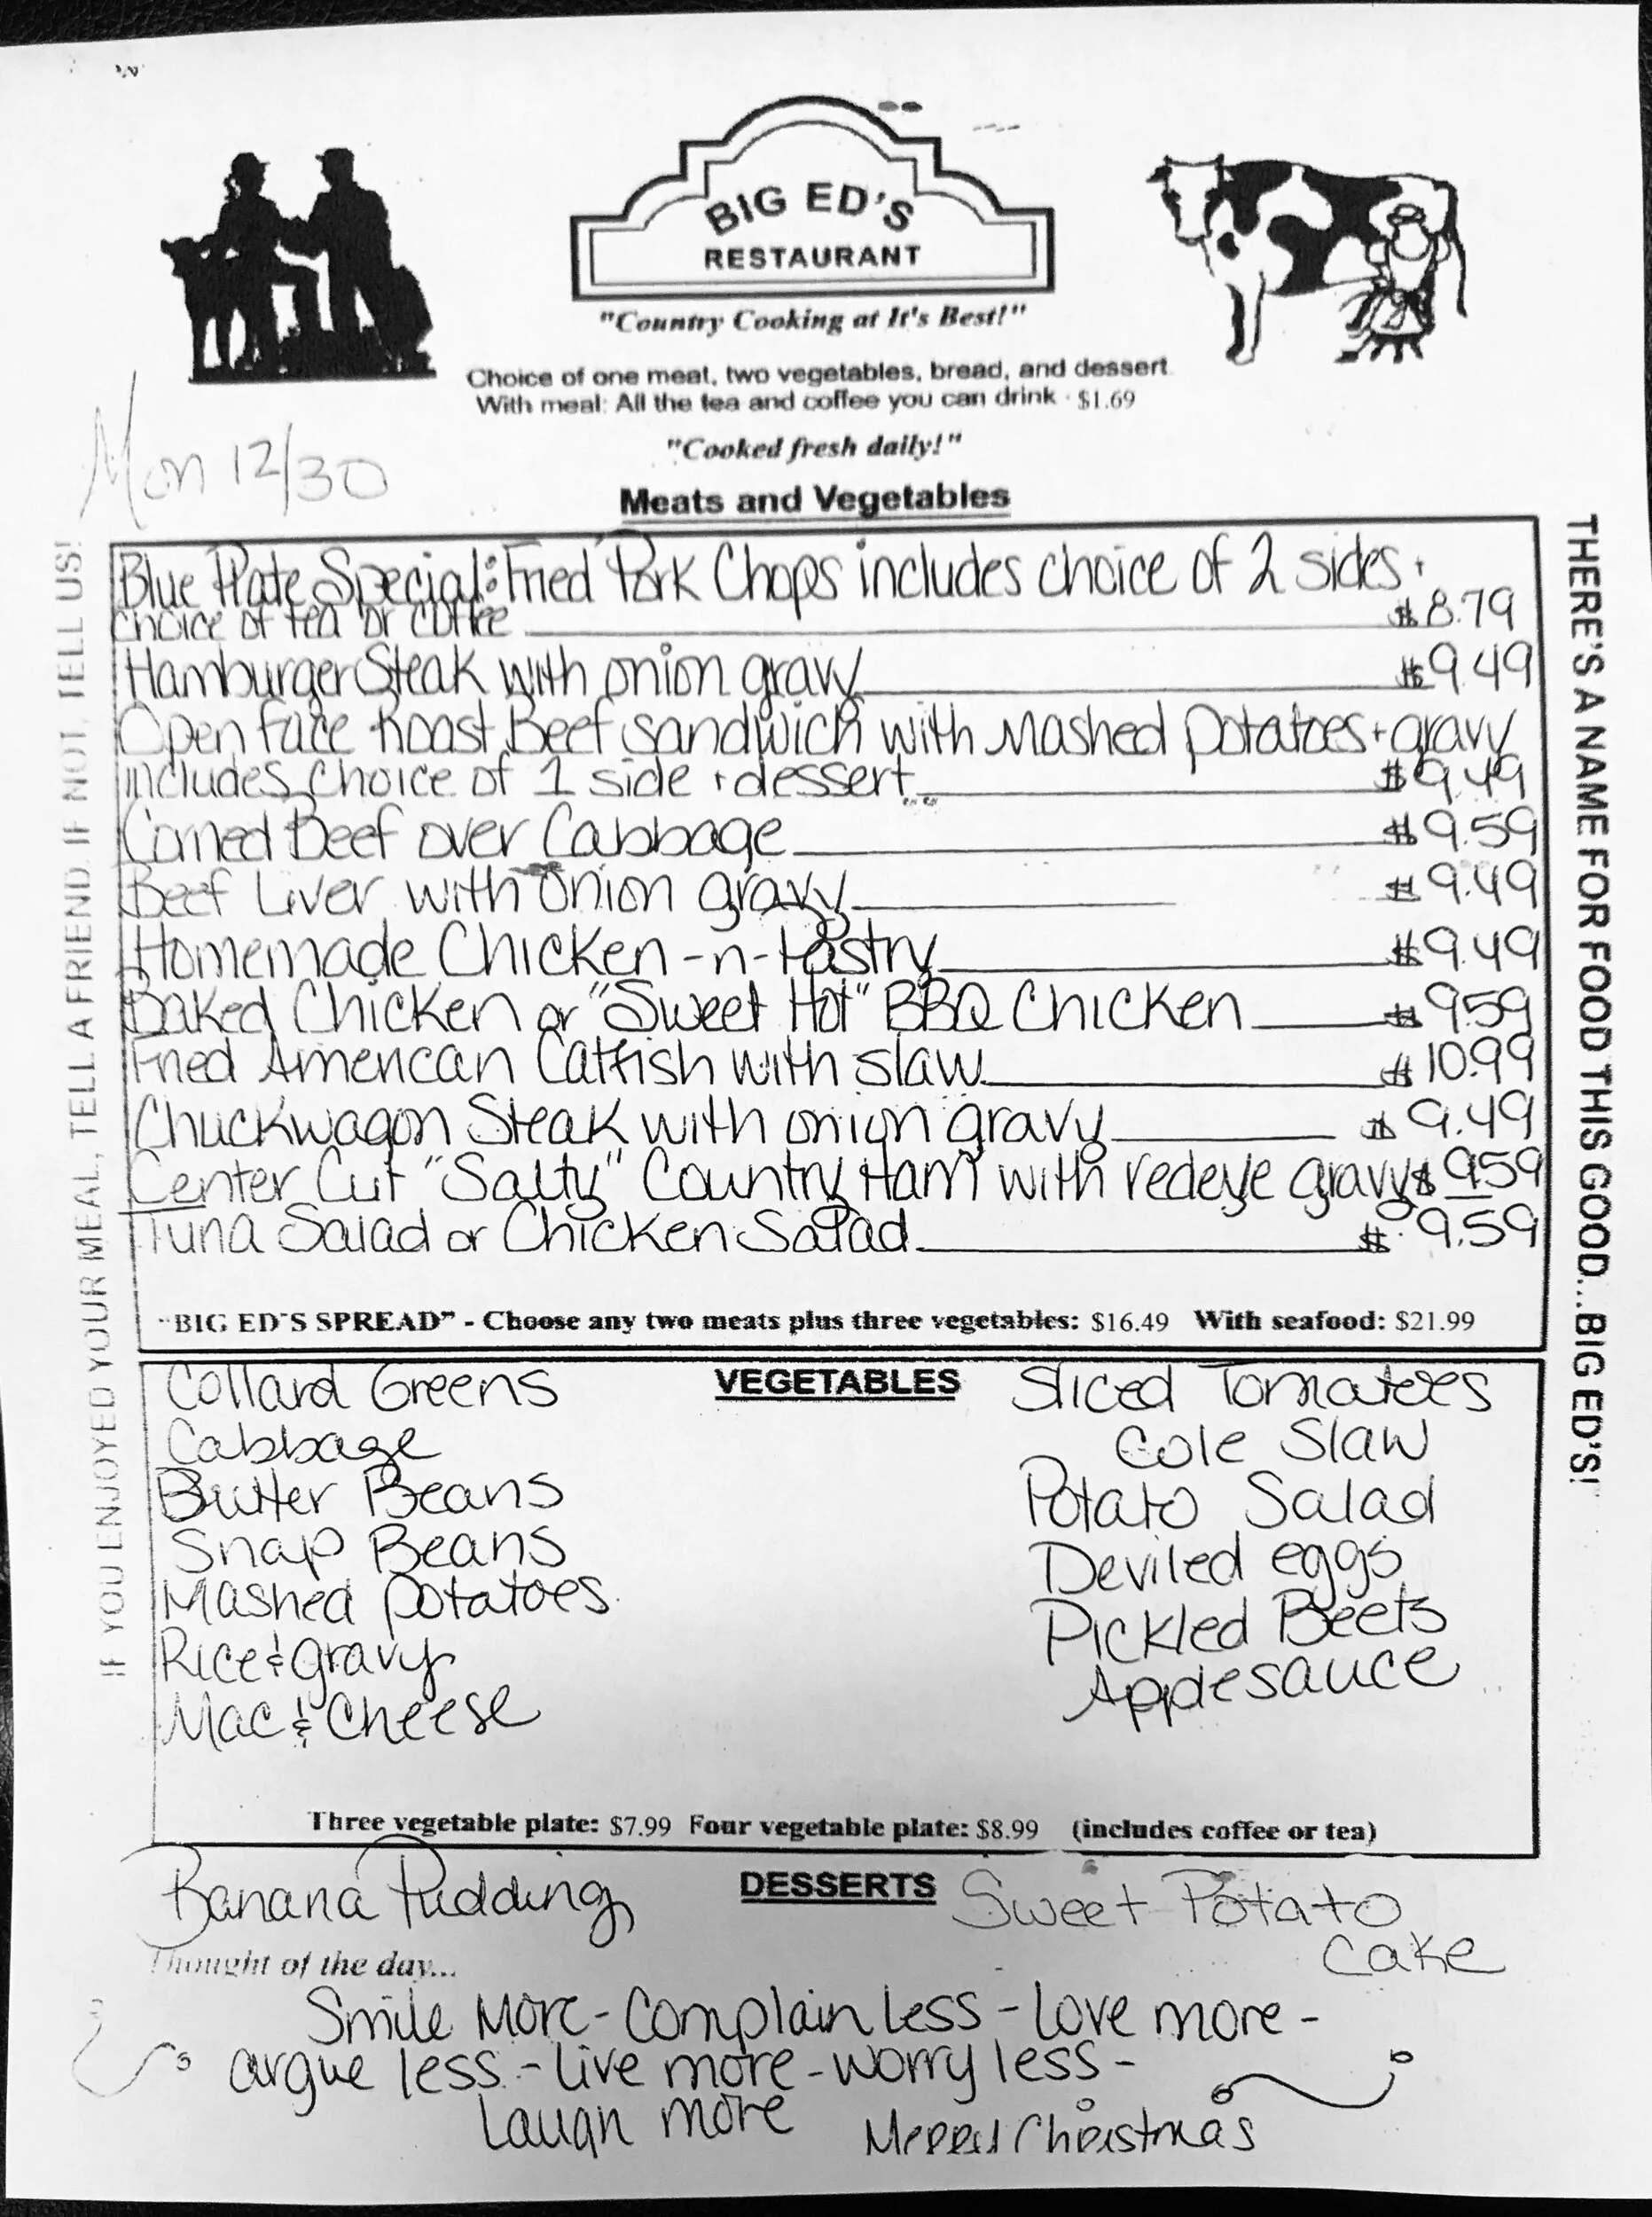 BIG ED'S
RESTAURANT
"Country Cooking at It's Best!"
Choice of one meat, two vegetables, bread, and dessert.
With meal: All the tea and coffee you can drink - $1.69
"Cooked fresh daily!"
Mon 12/30
Meats and Vegetables
Blue Plate Special: Fried Pork Chops includes choice of 2 sides +
choice of tea or coffee $8.79
Hamburger Steak with onion gravy $9.49
Open face Roast Beef sandwich with Mashed potatoes + gravy
includes choice of 1 side + dessert $9.49
Corned Beef over Cabbage $9.59
Beef Liver with Onion gravy $9.49
Homemade Chicken-n-Pastry $9.49
Baked Chicken or "Sweet Hot" BBQ Chicken $9.59
Fried American Catfish with slaw $10.99
Chuckwagon Steak with onion gravy $9.49
Center Cut "Salty" Country Ham with redeye gravy $9.59
Tuna Salad or Chicken Salad $9.59
"BIG ED'S SPREAD" - Choose any two meats plus three vegetables: $16.49 With seafood: $21.99
VEGETABLES
Collard Greens
Cabbage
Butter Beans
Snap Beans
Mashed potatoes
Rice & gravy
Mac & Cheese
Sliced Tomatoes
Cole Slaw
Potato Salad
Deviled eggs
Pickled Beets
Applesauce
Three vegetable plate: $7.99 Four vegetable plate: $8.99 (includes coffee or tea)
DESSERTS
Banana Pudding
Sweet Potato
Cake
Thought of the day...
Smile More - Complain Less - Love more -
argue less - Live more - worry less -
Laugh more Merry Christmas
IF YOU ENJOYED YOUR MEAL, TELL A FRIEND. IF NOT, TELL US!
THERE'S A NAME FOR FOOD THIS GOOD...BIG ED'S!